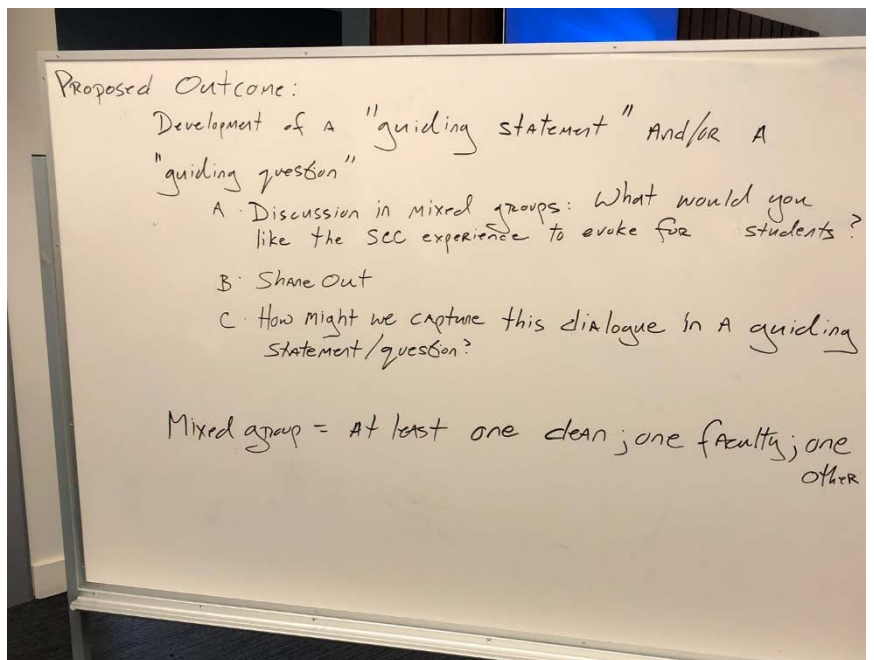 Proposed Outcome:
Development of A "guiding statement" And/or A
"guiding question"
A. Discussion in mixed groups: What would you
like the SCC experience to evoke for students?
B. Share Out
C. How might we capture this dialogue in A guiding
statement/question?
Mixed group = At least one dean; one faculty; one
other